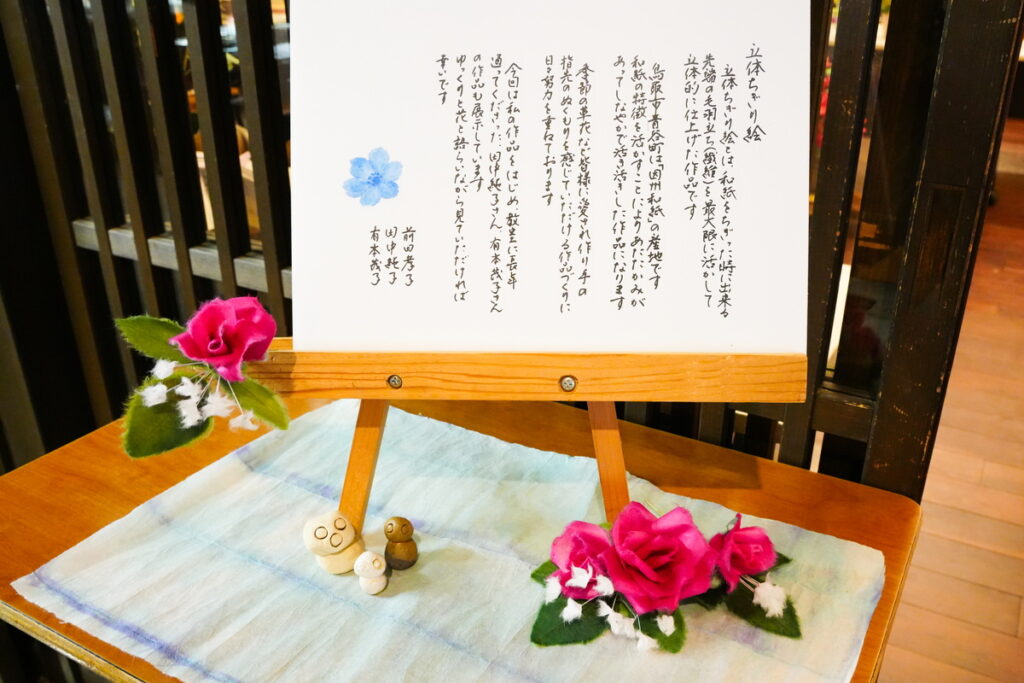 立体ちぎり絵
立体ちぎり絵とは和紙をちぎった時に出来る
先端の毛羽立ち(繊維)を最大限に活かして
立体的に仕上げた作品です
鳥取市青谷町は因州和紙の産地です
和紙の特徴を活かすことによりあたたかみが
あってしなやかで活き活きした作品になります
季節の草花など皆様に愛され作り手の
指先のぬくもりを感じていただける作品づくりに
日々努力を重ねております
今回は私の作品をはじめ教室に長年
通ってくださった田中純子さん、有本哉子さん
の作品も展示しています
ゆっくりと花と語らいながら見ていただければ
幸いです
前田孝子
田中純子
有本哉子